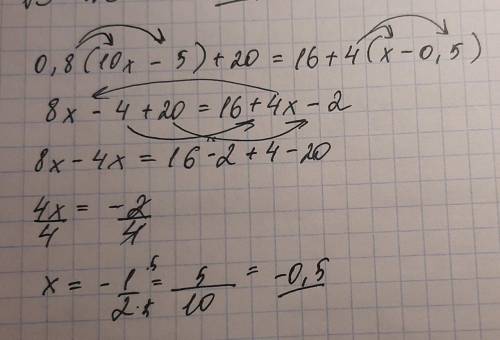 0,8(10x - 5) + 20 = 16 + 4(x - 0,5)
8x - 4 + 20 = 16 + 4x - 2
8x - 4x = 16 - 2 + 4 - 20
4x/4 = -2/4
x = -1·5/2·5 = 5/10 = -0,5